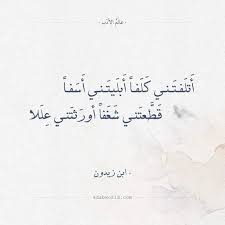 عالم الأدب
أَتلَفتَني كَلَفاً أَبلَيتَني أَسَفاً
قَطَّعتَني شَغَفاً أَورَثتَني عِلَلا
- ابن زيدون -